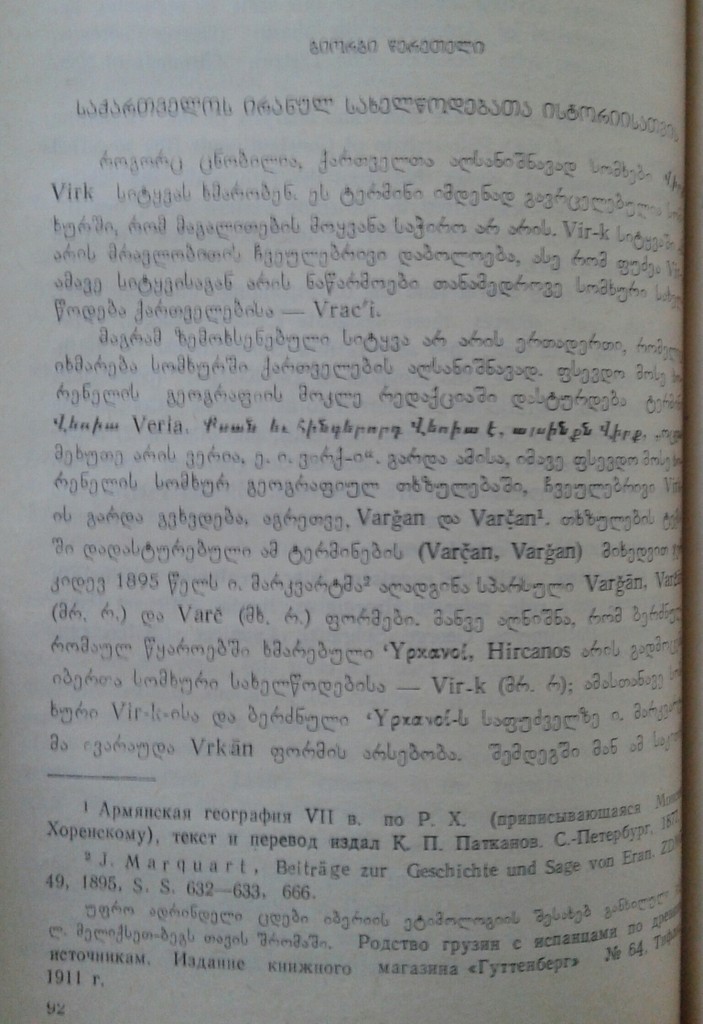 გიორგი წერეთელი
საქართველოს ირანულ სახელწოდებათა ისტორიისათვის
როგორც ცნობილია, ქართველთა აღსანიშნავად სომხები
Virk სიტყვას ხმარობენ. ეს ტერმინი იმდენად გავრცელებულია
ხურში, რომ მაგალითების მოყვანა საჭირო არ არის. Vir-k სიტყვაში
არის მრავლობითის ჩვეულებრივი დაბოლოება, ასე რომ ფუძეა
ამავე სიტყვისაგან არის ნაწარმოები თანამედროვე სომხური
წოდება ქართველებისა — Vrac‘i.
მაგრამ ზემოხსენებული სიტყვა არ არის ერთადერთი,
იხმარება სომხურში ქართველების აღსანიშნავად. ფსევდო მოსე
რენელის გეოგრაფიის მოკლე რედაქციაში დასტურდება
Վերիա Veria. Քսան եւ հինգերորդ Վերիա է, այսինքն Վիրք,
მეხუთე არის ვერია, ე. ი. ვირქ-ი“. გარდა ამისა, იმავე ფსევდო მოსე
რენელის სომხურ გეოგრაფიულ თხზულებაში, ჩვეულებრივი
ის გარდა გვხვდება, აგრეთვე, Varğan და Varčan¹. თხზულების
ში დადასტურებული ამ ტერმინების (Varčan, Varğan) მიხედვით
კიდევ 1895 წელს ი. მარკვარტმა² აღადგინა სპარსული Varğān,
(მრ. რ.) და Varč (მხ. რ.) ფორმები. მანვე აღნიშნა, რომ
რომაულ წყაროებში ხმარებული ‘Υρκανοί, Hircanos არის
იბერთა სომხური სახელწოდებისა — Vir-k (მრ. რ); ამასთანავე
ხური Vir-k-ისა და ბერძნული ‘Υρκανοί-ს საფუძველზე ი.
მა ივარაუდა Vrkān ფორმის არსებობა. შემდეგში მან ამ
¹ Армянская география VII в. по Р. Х. (приписывающаяся
Хоренскому), текст и перевод издал К. П. Патканов. С.-Петербург,
² J. Marquart, Beiträge zur Geschichte und Sage von Eran.
49, 1895, S. S. 632—633, 666.
უფრო ადრინდელი ცდები იბერიის ეტიმოლოგიის შესახებ განხილული
ლ. მელიქსეთ-ბეგს თავის შრომაში. Родство грузин с испанцами по
источникам. Издание книжного магазина «Гуттенберг» № 64,
1911 г.
92